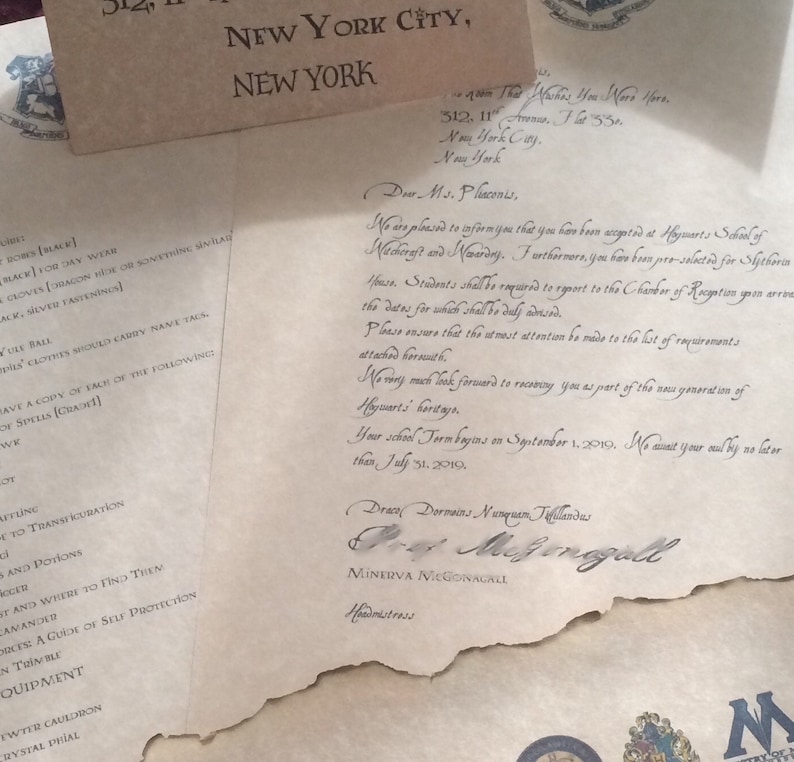 312, 11
NEW YORK CITY,
NEW YORK
Room That Wishes You Were Here,
312, 11th Avenue, Flat 33e,
New York City,
New York
Dear Ms. Pliaconis,
We are pleased to inform you that you have been accepted at Hogwarts School of
Witchcraft and Wizardry. Furthermore, you have been pre-selected for Slytherin
House. Students shall be required to report to the Chamber of Reception upon
the dates for which shall be duly advised.
Please ensure that the utmost attention be made to the list of requirements
attached herewith.
We very much look forward to receiving you as part of the new generation of
Hogwarts' heritage.
Your school Term begins on September 1, 2019. We await your owl by no later
than July 31, 2019.
Draco Dormeins Nunquam Titillandus
Prof McGonagall
MINERVA MCGONAGALL
Headmistress
ROBES [BLACK]
[BLACK] FOR DAY WEAR
GLOVES [DRAGON HIDE OR SOMETHING SIMILAR
SILVER FASTENINGS]
YULE BALL
CLOTHES SHOULD CARRY NAME TAGS.
HAVE A COPY OF EACH OF THE FOLLOWING:
OF SPELLS [GRADE1]
TO TRANSFIGURATION
AND POTIONS
AND WHERE TO FIND THEM
A GUIDE OF SELF PROTECTION
TRIMBLE
EQUIPMENT
CAULDRON
CRYSTAL PHIAL
M